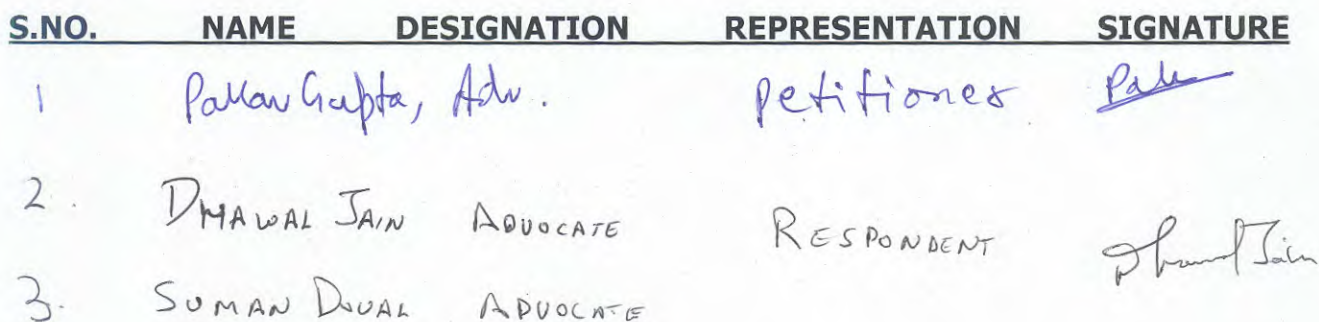 S.NO. NAME DESIGNATION REPRESENTATION SIGNATURE
1 Pallav Gupta, Adv. Petitioner
2. DHAWAL JAIN ADVOCATE RESPONDENT Dhawal Jain
3. SUMAN ADVOCATE